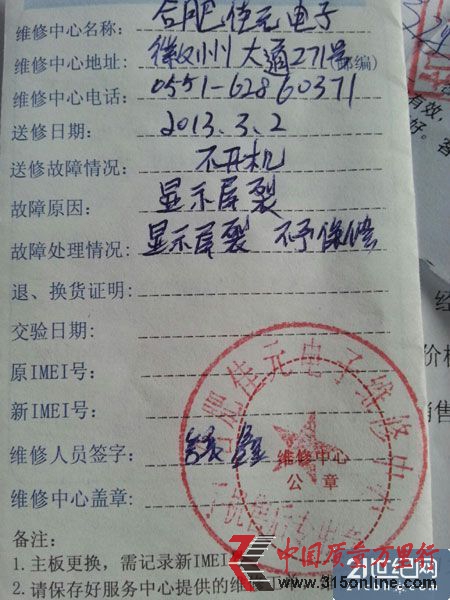 维修中心名称：合肥佳元电子
维修中心地址：徽州大道271号
邮编)
维修中心电话：0551-62860371
送修日期：2013.3.2
送修故障情况：不开机
故障原因：显示屏裂
故障处理情况：显示屏裂 不予保修
退、换货证明：
交验日期：
原IMEI号：
新IMEI号：
维修人员签字：
维修中心盖章：
肥佳元电子维修中
维修中心
公章
备注：
1.主板更换，需记录新IMEI
2.请保存好服务中心提供的维
有效，
好。客
经
价格
销售
中国质量万里行
www.315online.com
21世纪网